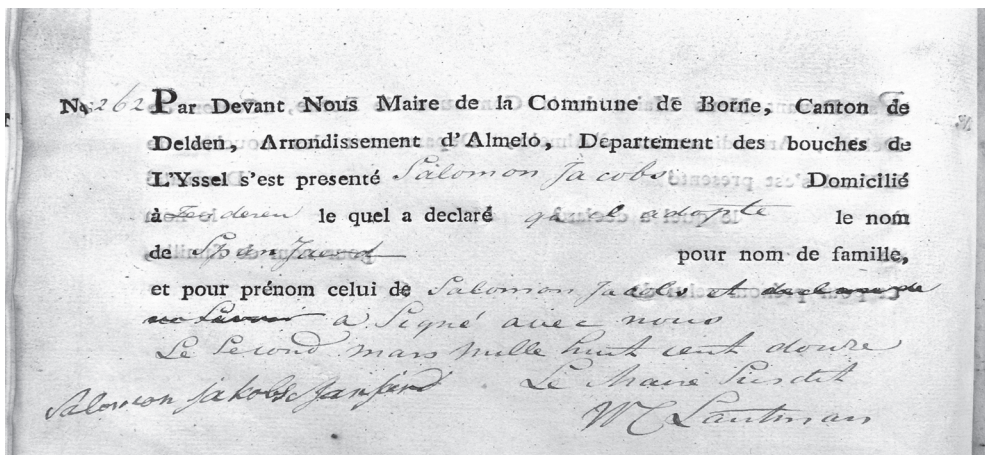 No. 262 Par Devant Nous Maire de la Commune de Borne, Canton de
Delden, Arrondissement d'Almelo, Departement des bouches de
L'Yssel s'est presenté Salomon Jacobs Domicilié
à le quel a declaré qu'il adopte le nom
de pour nom de famille,
et pour prénom celui de Salomon Jacobs et declare de
a Signé avec nous
Le Second mars mille huit cent douze
Le Maire Susdit
Salomon Jakobs
W C Lautman